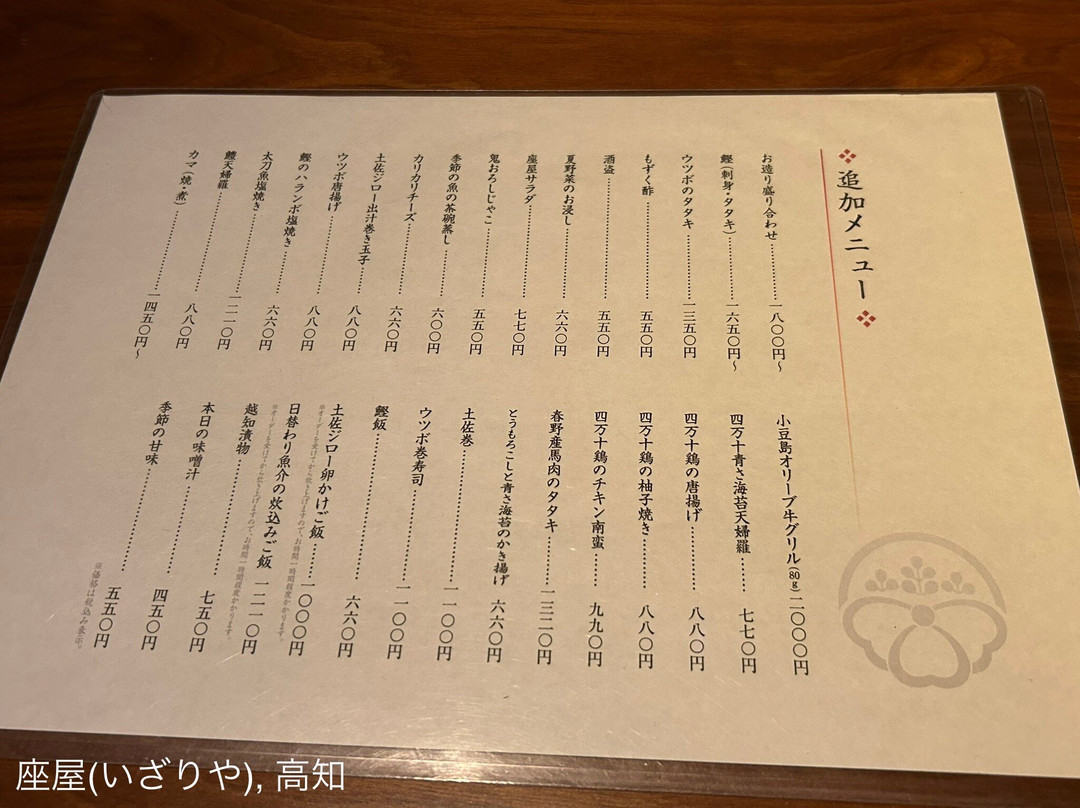 追加メニュー
お造り盛り合わせ 一八〇〇円〜
鰹(刺身・タタキ) 一六五〇円〜
ウツボのタタキ 一三五〇円
もずく酢 五五〇円
酒盗 五五〇円
夏野菜のお浸し 六六〇円
座屋サラダ 七七〇円
鬼おろしじゃこ 五五〇円
季節の魚の茶碗蒸し 六〇〇円
カリカリチーズ 六六〇円
土佐ジロー出汁巻き玉子 八八〇円
ウツボ唐揚げ 八八〇円
鰹のハランボ塩焼き 六六〇円
太刀魚塩焼き 一二一〇円
鱧天婦羅 八八〇円
カマ(焼・煮) 一四五〇円〜
小豆島オリーブ牛グリル(80g) 二〇〇〇円
四万十青さ海苔天婦羅 七七〇円
四万十鶏の唐揚げ 八八〇円
四万十鶏の柚子焼き 八八〇円
四万十鶏のチキン南蛮 九九〇円
春野産馬肉のタタキ 一三二〇円
とうもろこしと青さ海苔のかき揚げ 六六〇円
土佐巻 一一〇〇円
ウツボ巻寿司 一一〇〇円
鰹飯 六六〇円
土佐ジロー卵かけご飯 一〇〇〇円
※オーダーを受けてから炊き上げますので、お時間一時間程度かかります。
日替わり魚介の炊込みご飯 一二一〇円
※オーダーを受けてから炊き上げますので、お時間一時間程度かかります。
越知漬物 七五〇円
本日の味噌汁 四五〇円
季節の甘味 五五〇円
※価格は税込み表示。
座屋(いざりや), 高知